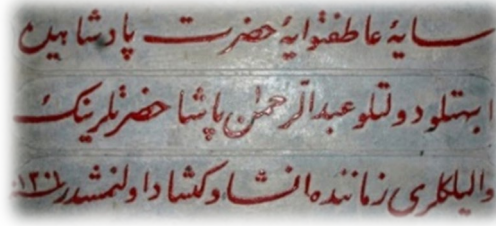 سايۀ عاطفتوايۀ حضرت پادشاهيده
ابهتلو دولتلو عبدالرحمن پاشا حضرتلرينك
واليلكلرى زماننده انشا وكشاد اولنمشدر ١٣٠١